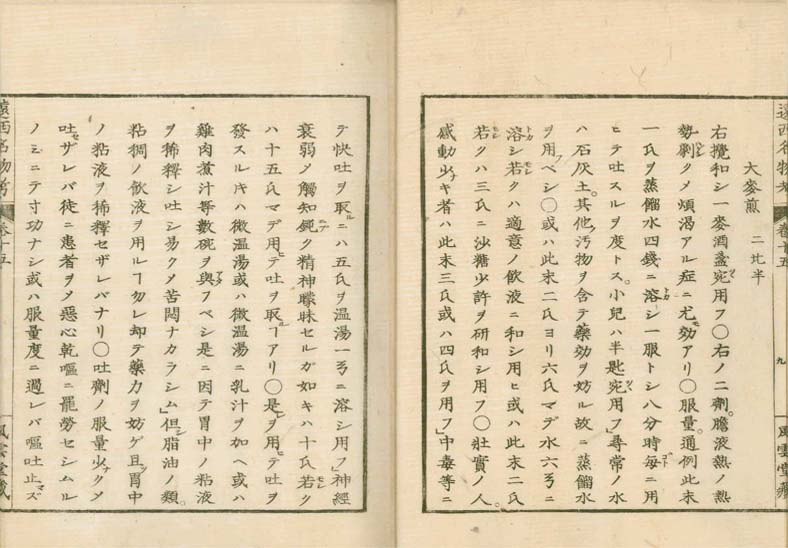 遠西名物考
巻十五
九
風雲堂蔵
大麥煎 二比半
右攪和シ一麥酒盞宛用フ〇右ノ二劑。膽液熱ノ熱
勢劇クメ煩渇アル症ニ尤効アリ〇服量。通例此末
一氏ヲ蒸餾水四錢ニ溶シ一服トシ八分時毎ニ用
ヒテ吐スルヲ度トス。小兒ハ半匙宛用フ」尋常ノ水
ハ石灰土。其他汚物ヲ含テ藥効ヲ妨ル故ニ蒸餾水
ヲ用フベシ〇或ハ此末二氏ヨリ六氏マデ水六ᄅニ
溶シ若クハ適意ノ飲液ニ和シ用ヒ或ハ此末二氏
若クハ三氏ニ沙糖少許ヲ研和シ用フ〇壯實ノ人。
感動少キ者ハ此末三氏或ハ四氏ヲ用フ」中毒等ニ
テ快吐ヲ取ニハ五氏ヲ温湯一ᄅニ溶シ用フ」神經
衰弱メ觸知鈍ク精神曚昧セルガ如キハ十氏若ク
ハ十五氏マデ用テ吐ヲ取ヿアリ〇是ヲ用テ吐ヲ
發スルキハ微温湯或ハ微温湯ニ乳汁ヲ加ヘ或ハ
雞肉煮汁等數碗ヲ與フベシ是ニ因テ胃中ノ粘液
ヲ稀釋シ吐シ易クメ苦悶ナカラシム」但脂油ノ類。
粘稠ノ飲液ヲ用ルヿ勿レ却テ藥力ヲ妨ゲ且胃中
ノ粘液ヲ稀釋セザレバナリ〇吐劑ノ服量少クメ
吐ザレバ徒ニ患者ヲメ惡心乾嘔ニ罷勞セシムル
ノミニテ寸功ナシ或ハ服量度ニ過レバ嘔吐止ズ
遠西名物考
巻十五
風雲堂蔵